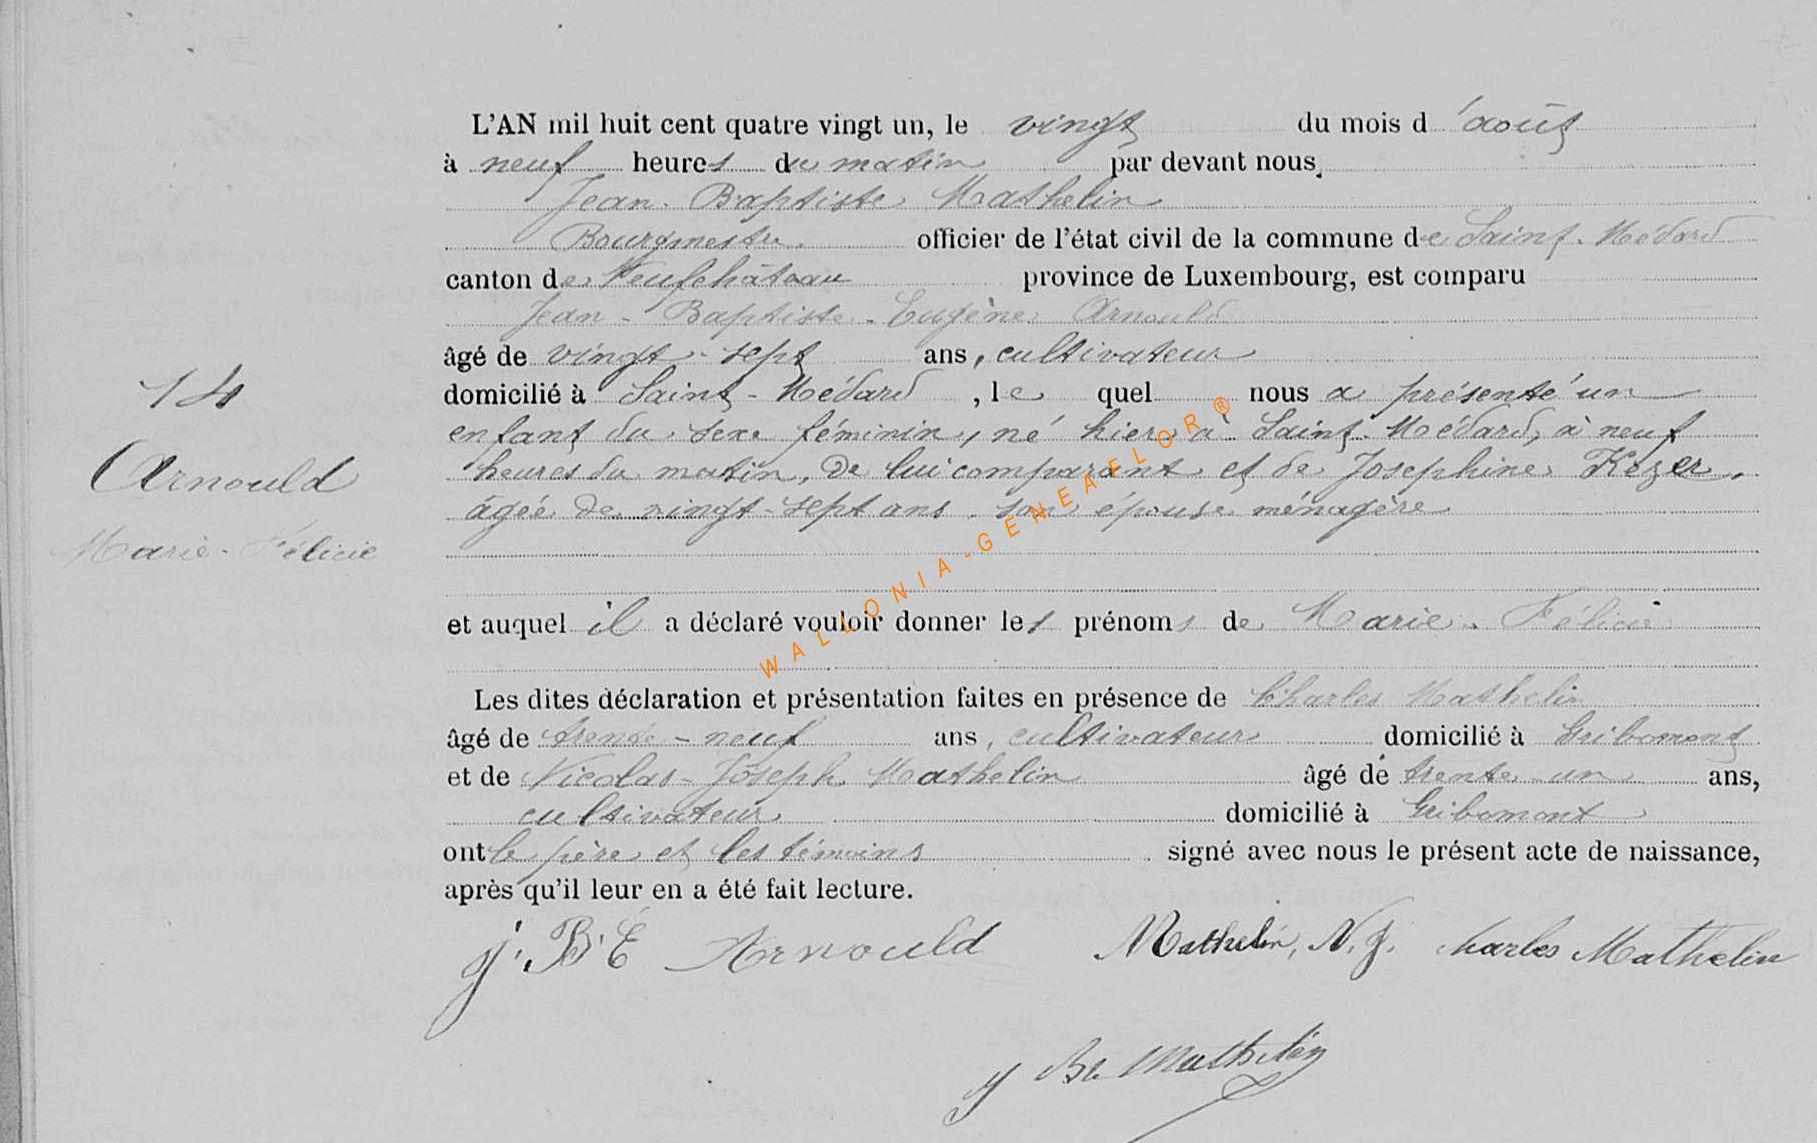 L'AN mil huit cent quatre vingt un, le vingt du mois d'août
à neuf heures du matin par devant nous,
Jean-Baptiste Mathelin
Bourgmestre officier de l'état civil de la commune de Saint-Médard
canton de Neufchâteau province de Luxembourg, est comparu
Jean-Baptiste-Eugène Arnould
âgé de vingt-sept ans, cultivateur
domicilié à Saint-Médard, le quel nous a présenté un
enfant du sexe féminin, né hier à Saint-Médard, à neuf
heures du matin, de lui comparant et de Josephine Kezer,
âgée de vingt-sept ans son épouse ménagère
14
Arnould
Marie-Félicie
et auquel il a déclaré vouloir donner les prénoms de Marie-Félicie
Les dites déclaration et présentation faites en présence de Charles Mathelin
âgé de trente-neuf ans, cultivateur domicilié à Gribomont
et de Nicolas-Joseph Mathelin âgé de trente-un ans,
cultivateur domicilié à Gribomont
ont le père et les témoins signé avec nous le présent acte de naissance,
après qu'il leur en a été fait lecture.
J. B. E Arnould Mathelin, N. J. Charles Mathelin
J Bte Mathelin
WALLONIA-GENEAFLOR®